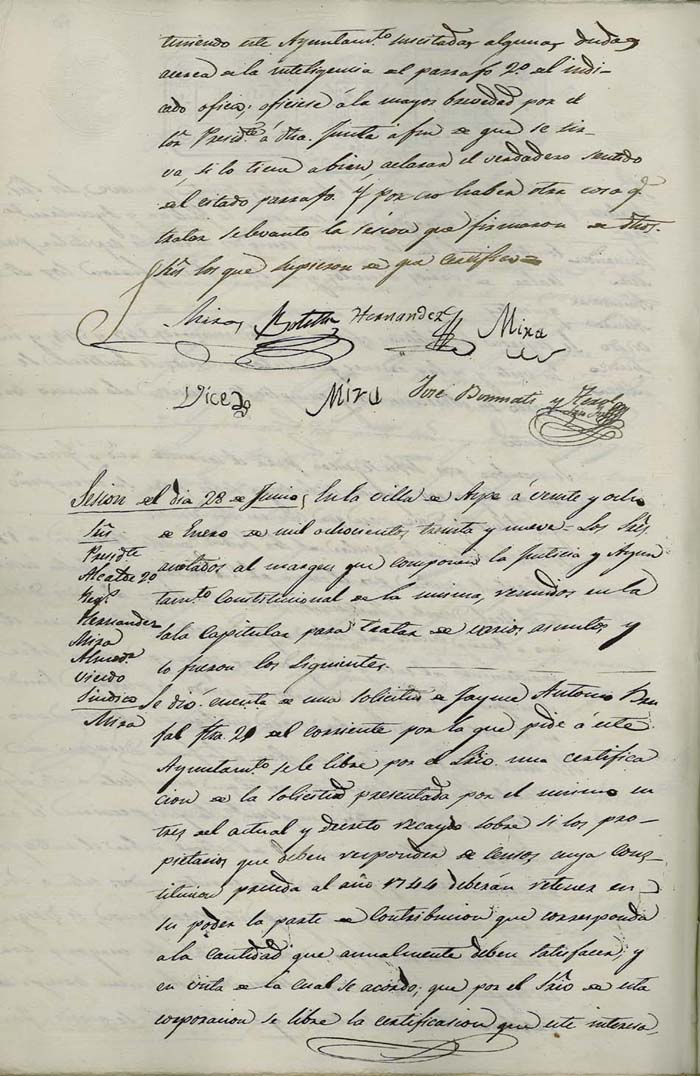 teniendo este Ayuntam.to suscitadas algunas dudas
acerca de la inteligencia del parrafo 2.o del indi-
cado oficio; oficiese á la mayor brevedad por el
Sôr Presid.te á dha. Junta á fin de que se sir-
va, si lo tiene a bien, aclarar el verdadero sentido
del citado parrafo. Y por no haber otra cosa q.e
tratar se levanto la sesion que firmaron de dhos.
Sres. los que supieron de que certifico =
Mira Botella Hernandez Mira
Vicedo Mira José Bonmati y
Sesion del dia 28 de Junio, En la villa de Aspe á veinte y ocho
de Enero de mil ochocientos treinta y nueve = Los Sres.
anotados al margen que componen la Justicia y Ayun
tam.to Constitucional de la misma, reunidos en la
Sala Capitular para tratar de varios asuntos y
lo fueron los siguientes.
Sres
Presid.te
Alcalde 2.o
Reg.s
Hernandez
Mira
Almod.
Vicedo
Sindico
Mira
Se dió cuenta de una solicitud de Jayme Antonio
fha. 20 del corriente por la que pide á este
Ayuntam.to se le libre por el Srio. una certifica
cion de la solicitud presentada por el mismo en
tres del actual y decreto recaydo sobre si los pro-
pietarios que deben responder de censos cuya cons-
titucion preceda al año 1744 deberán retener en
su poder la parte de contribucion que corresponda
a la cantidad que anualmente deben satisfacer; y
en vista de la cual se acordo; que por el Srio de esta
corporacion se libre la certificacion que este interesa,